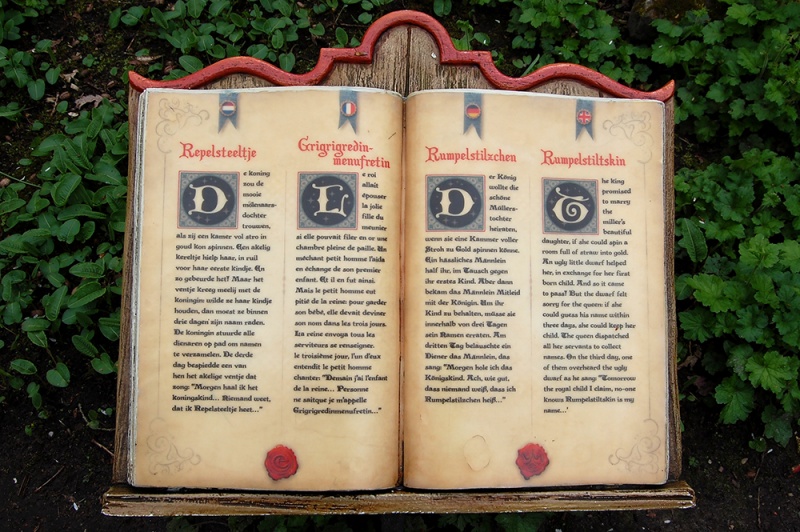 Repelsteeltje
De koning
zou de
mooie
molenaars-
dochter
trouwen,
als zij een kamer vol stro in
goud kon spinnen. Een akelig
kereltje hielp haar, in ruil
voor haar eerste kindje. En
zo gebeurde het! Maar het
ventje kreeg meelij met de
koningin wilde ze haar kindje
houden, dan moest ze binnen
drie dagen zijn naam raden.
De koningin stuurde alle
dienaren op pad om namen
te verzamelen. De derde
dag bespiedde een van
hen het akelige ventje dat
zong: "Morgen haal ik het
koningskind... Niemand weet,
dat ik Repelsteeltje heet..."
Grigrigredin-
menufretin
Le roi
allait
épouser
la jolie
fille du
meunier
si elle pouvait filer en or une
chambre pleine de paille. Un
méchant petit homme l'aida
en échange de son premier
enfant. Et il en fut ainsi.
Mais le petit homme eut
pitié de la reine: pour garder
son bébé, elle devait deviner
son nom dans les trois jours.
La reine envoya tous les
serviteurs se renseigner.
le troisième jour, l'un d'eux
entendit le petit homme
chanter: "Demain j'ai l'enfant
de la reine... Personne
ne saitque je m'appelle
Grigrigredinmenufretin..."
Rumpelstilzchen
Der König
wollte die
schöne
Müllers-
tochter
heiraten,
wenn sie eine Kammer voller
Stroh zu Gold spinnen könne.
Ein hässliches Männlein
half ihr, im Tausch gegen
ihr erstes Kind. Aber dann
bekam das Männlein Mitleid
mit der Königin. Um ihr
Kind zu behalten, müsse sie
innerhalb von drei Tagen
sein Namen erraten. Am
dritten Tag belauschte ein
Diener das Männlein, das
sang: "Morgen hole ich das
Königskind. Ach, wie gut,
dass niemand weiß, dass ich
Rumpelstilzchen heiß..."
Rumpelstiltskin
The king
promised
to marry
the
miller's
beautiful
daughter, if she could spin a
room full of straw into gold.
An ugly little dwarf helped
her, in exchange for her first
born child. And so it came
to pass! But the dwarf felt
sorry for the queen: if she
could guess his name within
three days, she could kepp her
child. The queen dispatched
all her servants to collect
names. On the third day, one
of them overheard the ugly
dwarf as he sang: "Tomorrow
the royal child I claim, no-one
knows Rumpelstiltskin is my
name...'